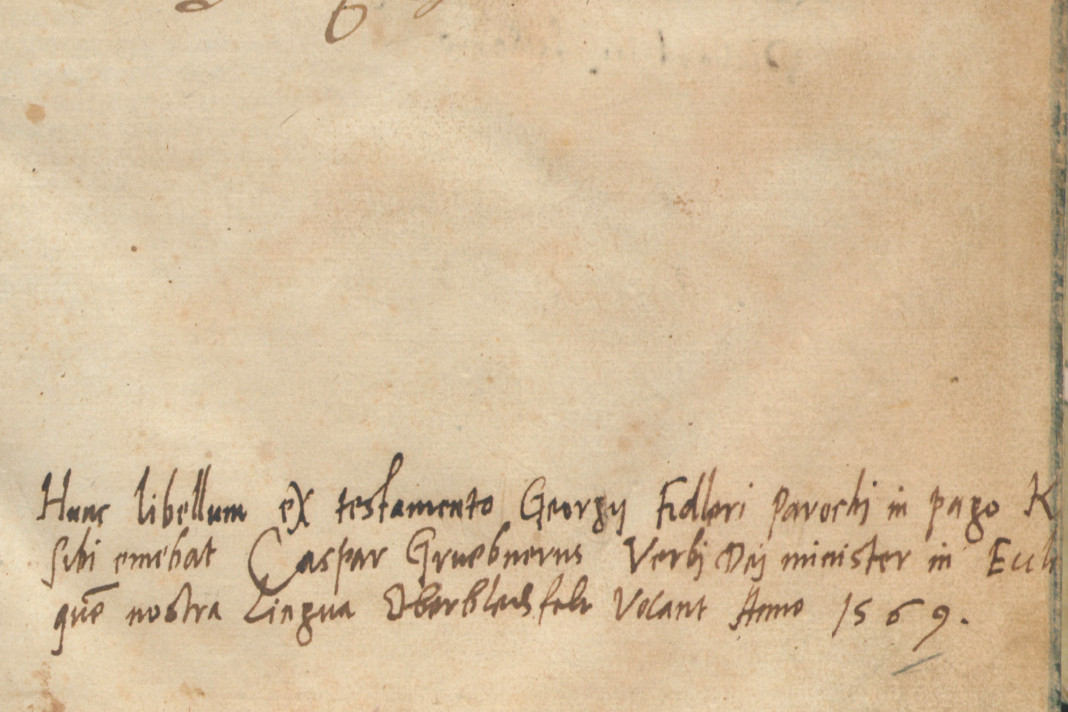 Hunc libellum ex testamento Georgij Fidleri Parochi in pago K
sibi emebat Caspar Gruebnerus Verbj Dej minister in Eccle
quē nostra Lingua Vocant Anno 1569.